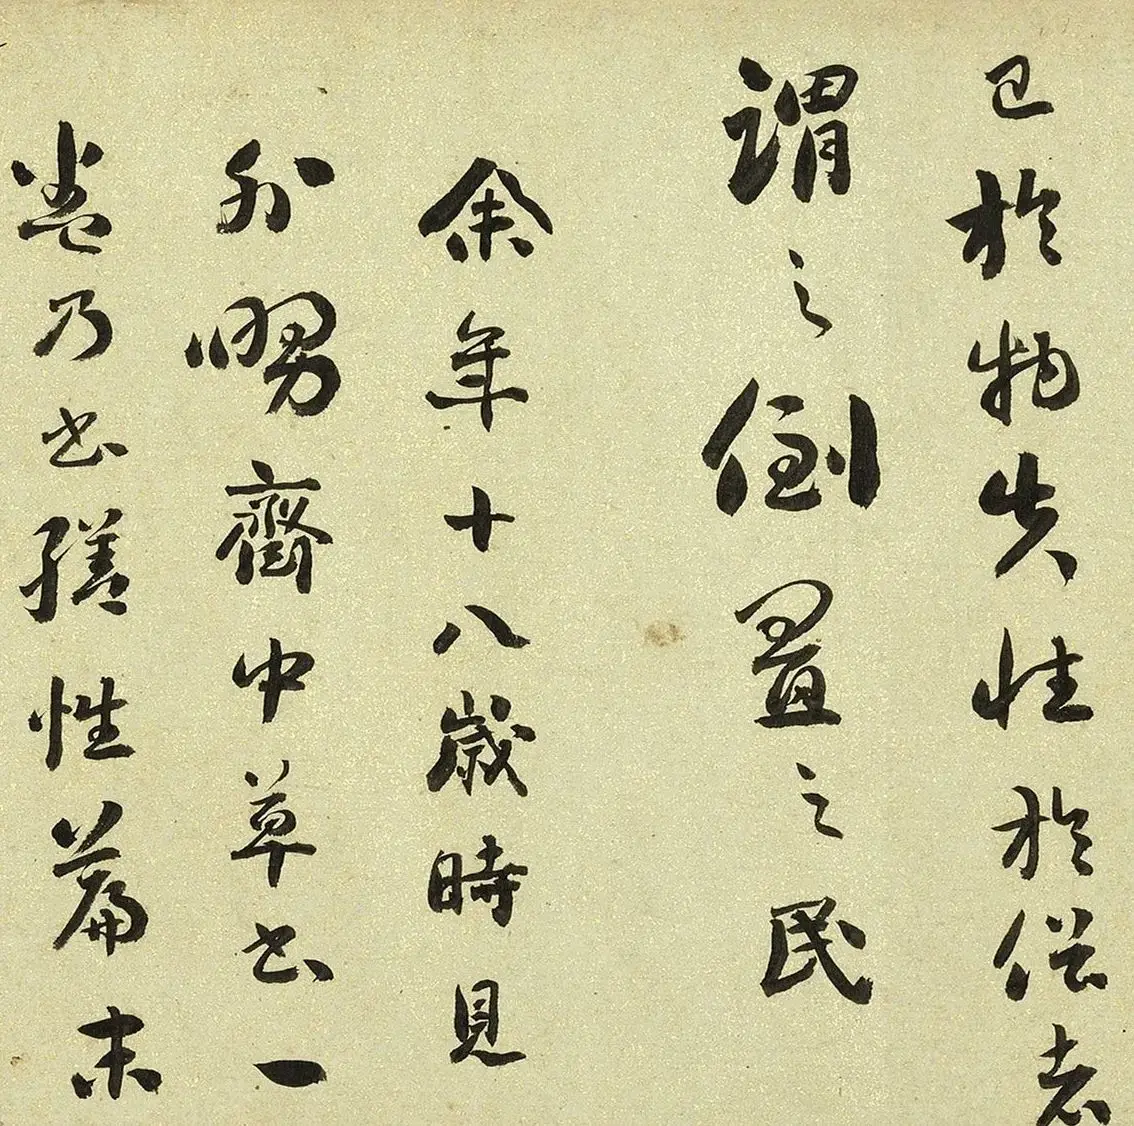 己於物失性於俗者
謂之倒置之民
余年十八歲時見
外舅齋中草書一
卷乃書繕性篇末